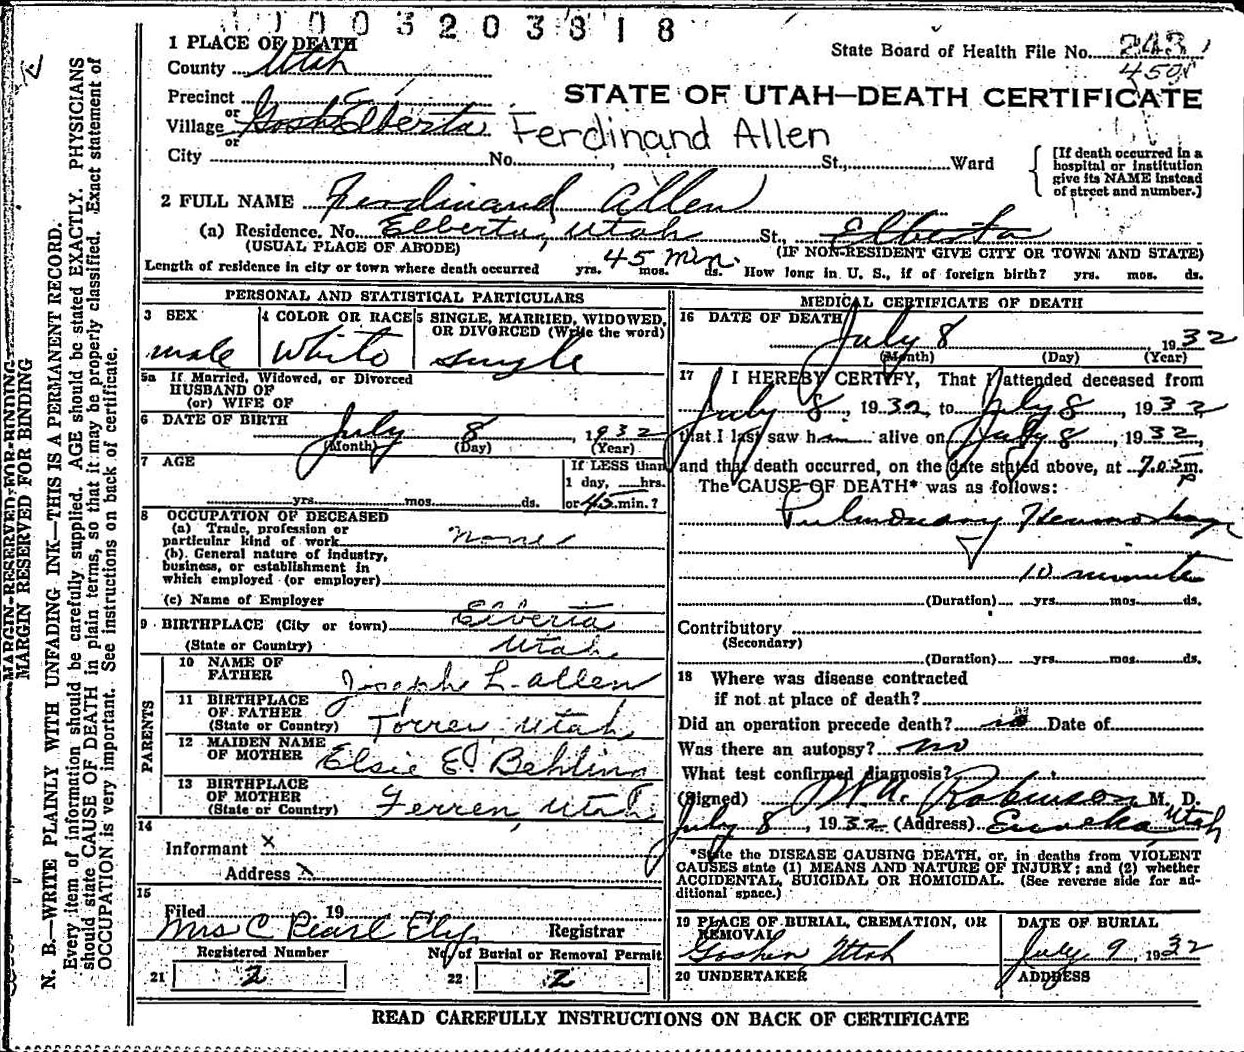 0003203818
1 PLACE OF DEATH
State Board of Health File No. 243
County Utah
450
Precinct
STATE OF UTAH—DEATH CERTIFICATE
or
Village Goshen Elberta Ferdinand Allen
or
City No. , St., Ward
[If death occurred in a hospital or institution give its NAME instead of street and number.]
2 FULL NAME Ferdinand Allen
(a) Residence. No. Elberta, Utah St., Elberta
(USUAL PLACE OF ABODE) (IF NON-RESIDENT GIVE CITY OR TOWN AND STATE)
Length of residence in city or town where death occurred yrs. 45 min. mos. ds. How long in U. S., if of foreign birth? yrs. mos. ds.
PERSONAL AND STATISTICAL PARTICULARS
3 SEX 4 COLOR OR RACE 5 SINGLE, MARRIED, WIDOWED,
OR DIVORCED (Write the word)
male White single
5a If Married, Widowed, or Divorced
HUSBAND OF
(or) WIFE OF
6 DATE OF BIRTH
July 8, 1932
(Month) (Day) (Year)
7 AGE If LESS than
1 day, hrs.
yrs. mos. ds. or 45 min.?
8 OCCUPATION OF DECEASED
(a) Trade, profession or
particular kind of work none
(b) General nature of industry,
business, or establishment in
which employed (or employer)
(c) Name of Employer
9 BIRTHPLACE (City or town) Elberta
(State or Country) Utah
PARENTS
10 NAME OF
FATHER Joseph L. Allen
11 BIRTHPLACE
OF FATHER
(State or Country) Torrey, Utah
12 MAIDEN NAME
OF MOTHER Elsie E. Behling
13 BIRTHPLACE
OF MOTHER
(State or Country) Ferren, Utah
14
Informant x
Address x
15
Filed 19
Mrs C Pearl Ely Registrar
Registered Number No. of Burial or Removal Permit
21 2 22 2
MEDICAL CERTIFICATE OF DEATH
16 DATE OF DEATH
July 8 1932
(Month) (Day) (Year)
17 I HEREBY CERTIFY, That I attended deceased from
July 8, 1932, to July 8, 1932
that I last saw him alive on July 8, 1932,
and that death occurred, on the date stated above, at 7.05 p m.
The CAUSE OF DEATH* was as follows:
Pulmonary Hemorhage
10 minutes
(Duration) yrs. mos. ds.
Contributory
(Secondary)
(Duration) yrs. mos. ds.
18 Where was disease contracted
if not at place of death?
Did an operation precede death? no Date of
Was there an autopsy? no
What test confirmed diagnosis?
(Signed) Robinson M. D.
July 8, 1932 (Address) Eureka Utah
*State the DISEASE CAUSING DEATH, or, in deaths from VIOLENT
CAUSES state (1) MEANS AND NATURE OF INJURY; and (2) whether
ACCIDENTAL, SUICIDAL OR HOMICIDAL. (See reverse side for ad-
ditional space.)
19 PLACE OF BURIAL, CREMATION, OR
REMOVAL
Goshen Utah
DATE OF BURIAL
July 9, 1932
20 UNDERTAKER ADDRESS
READ CAREFULLY INSTRUCTIONS ON BACK OF CERTIFICATE
MARGIN RESERVED FOR BINDING
MARGIN RESERVED FOR BINDING
N. B.—WRITE PLAINLY WITH UNFADING INK—THIS IS A PERMANENT RECORD.
Every item of information should be carefully supplied. AGE should be stated EXACTLY. PHYSICIANS
should state CAUSE OF DEATH in plain terms, so that it may be properly classified. Exact statement of
OCCUPATION is very important. See instructions on back of certificate.